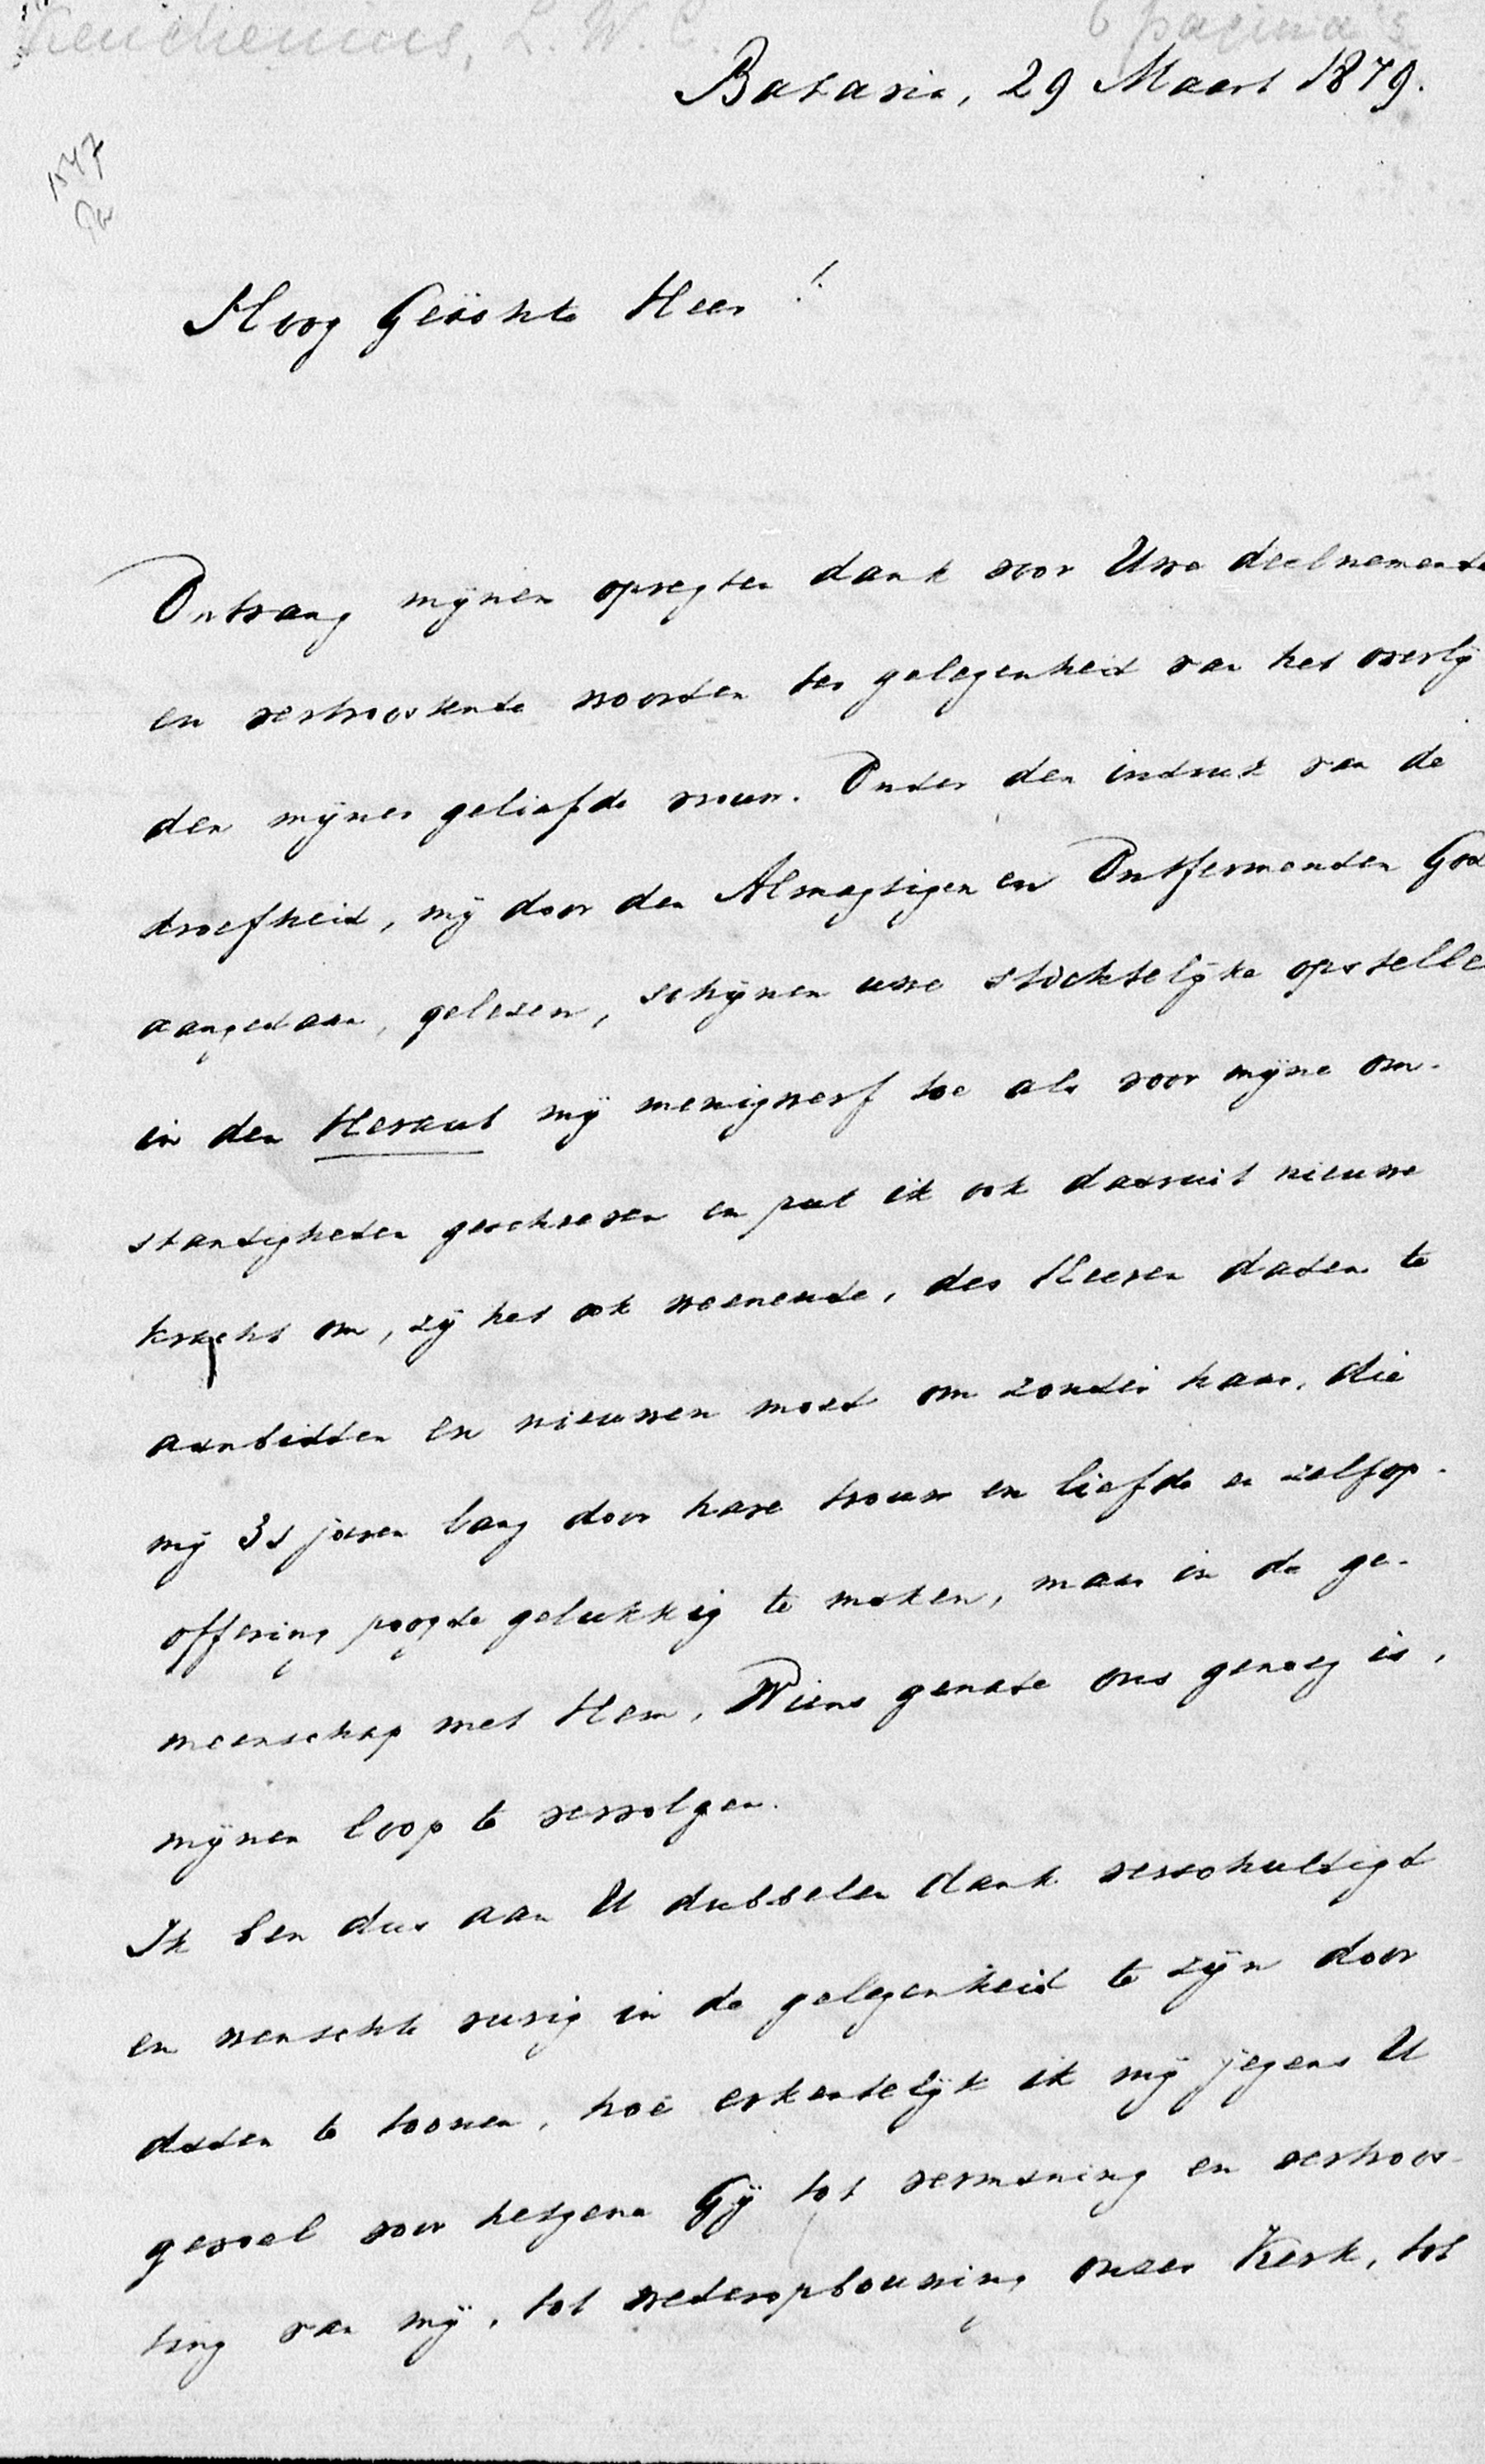 Keuchenius, L. W. C. 6 pagina's
Batavia, 29 Maart 1879.
1547
Hoog Geächte Heer!
Ontvang mijnen opregten dank voor Uwe deelnemende
en vertroostende woorden ter gelegenheid van het overlij
den mijner geliefde vrouw. Onder den indruk van de
droefheid, mij door den Almagtigen en Ontfermenden God
aangedaan, gelezen, schijnen uwe stichtelijke opstelle
in den Heraut mij menigwerf toe als voor mijne om-
standigheden geschreven en put ik ook daaruit nieuwe
kracht om, zij het ook weenende, des Heeren daden te
aanbidden en nieuwen moed om zonder haar, die
mij jaren lang door hare trouw en liefde en zelfop-
offering poogde gelukkig te maken, maar in de ge-
meenschap met Hem, Wiens genade ons genoeg is,
mijnen loop te vervolgen.
Ik ben dus aan U dubbelen dank verschuldigd
en wenschte vurig in de gelegenheid te zijn door
daden te toonen, hoe erkentelijk ik mij jegens U
gevoel voor hetgene Gij tot vermaning en vertroos-
ting van mij, tot wederopbouwing onzer Kerk, tot